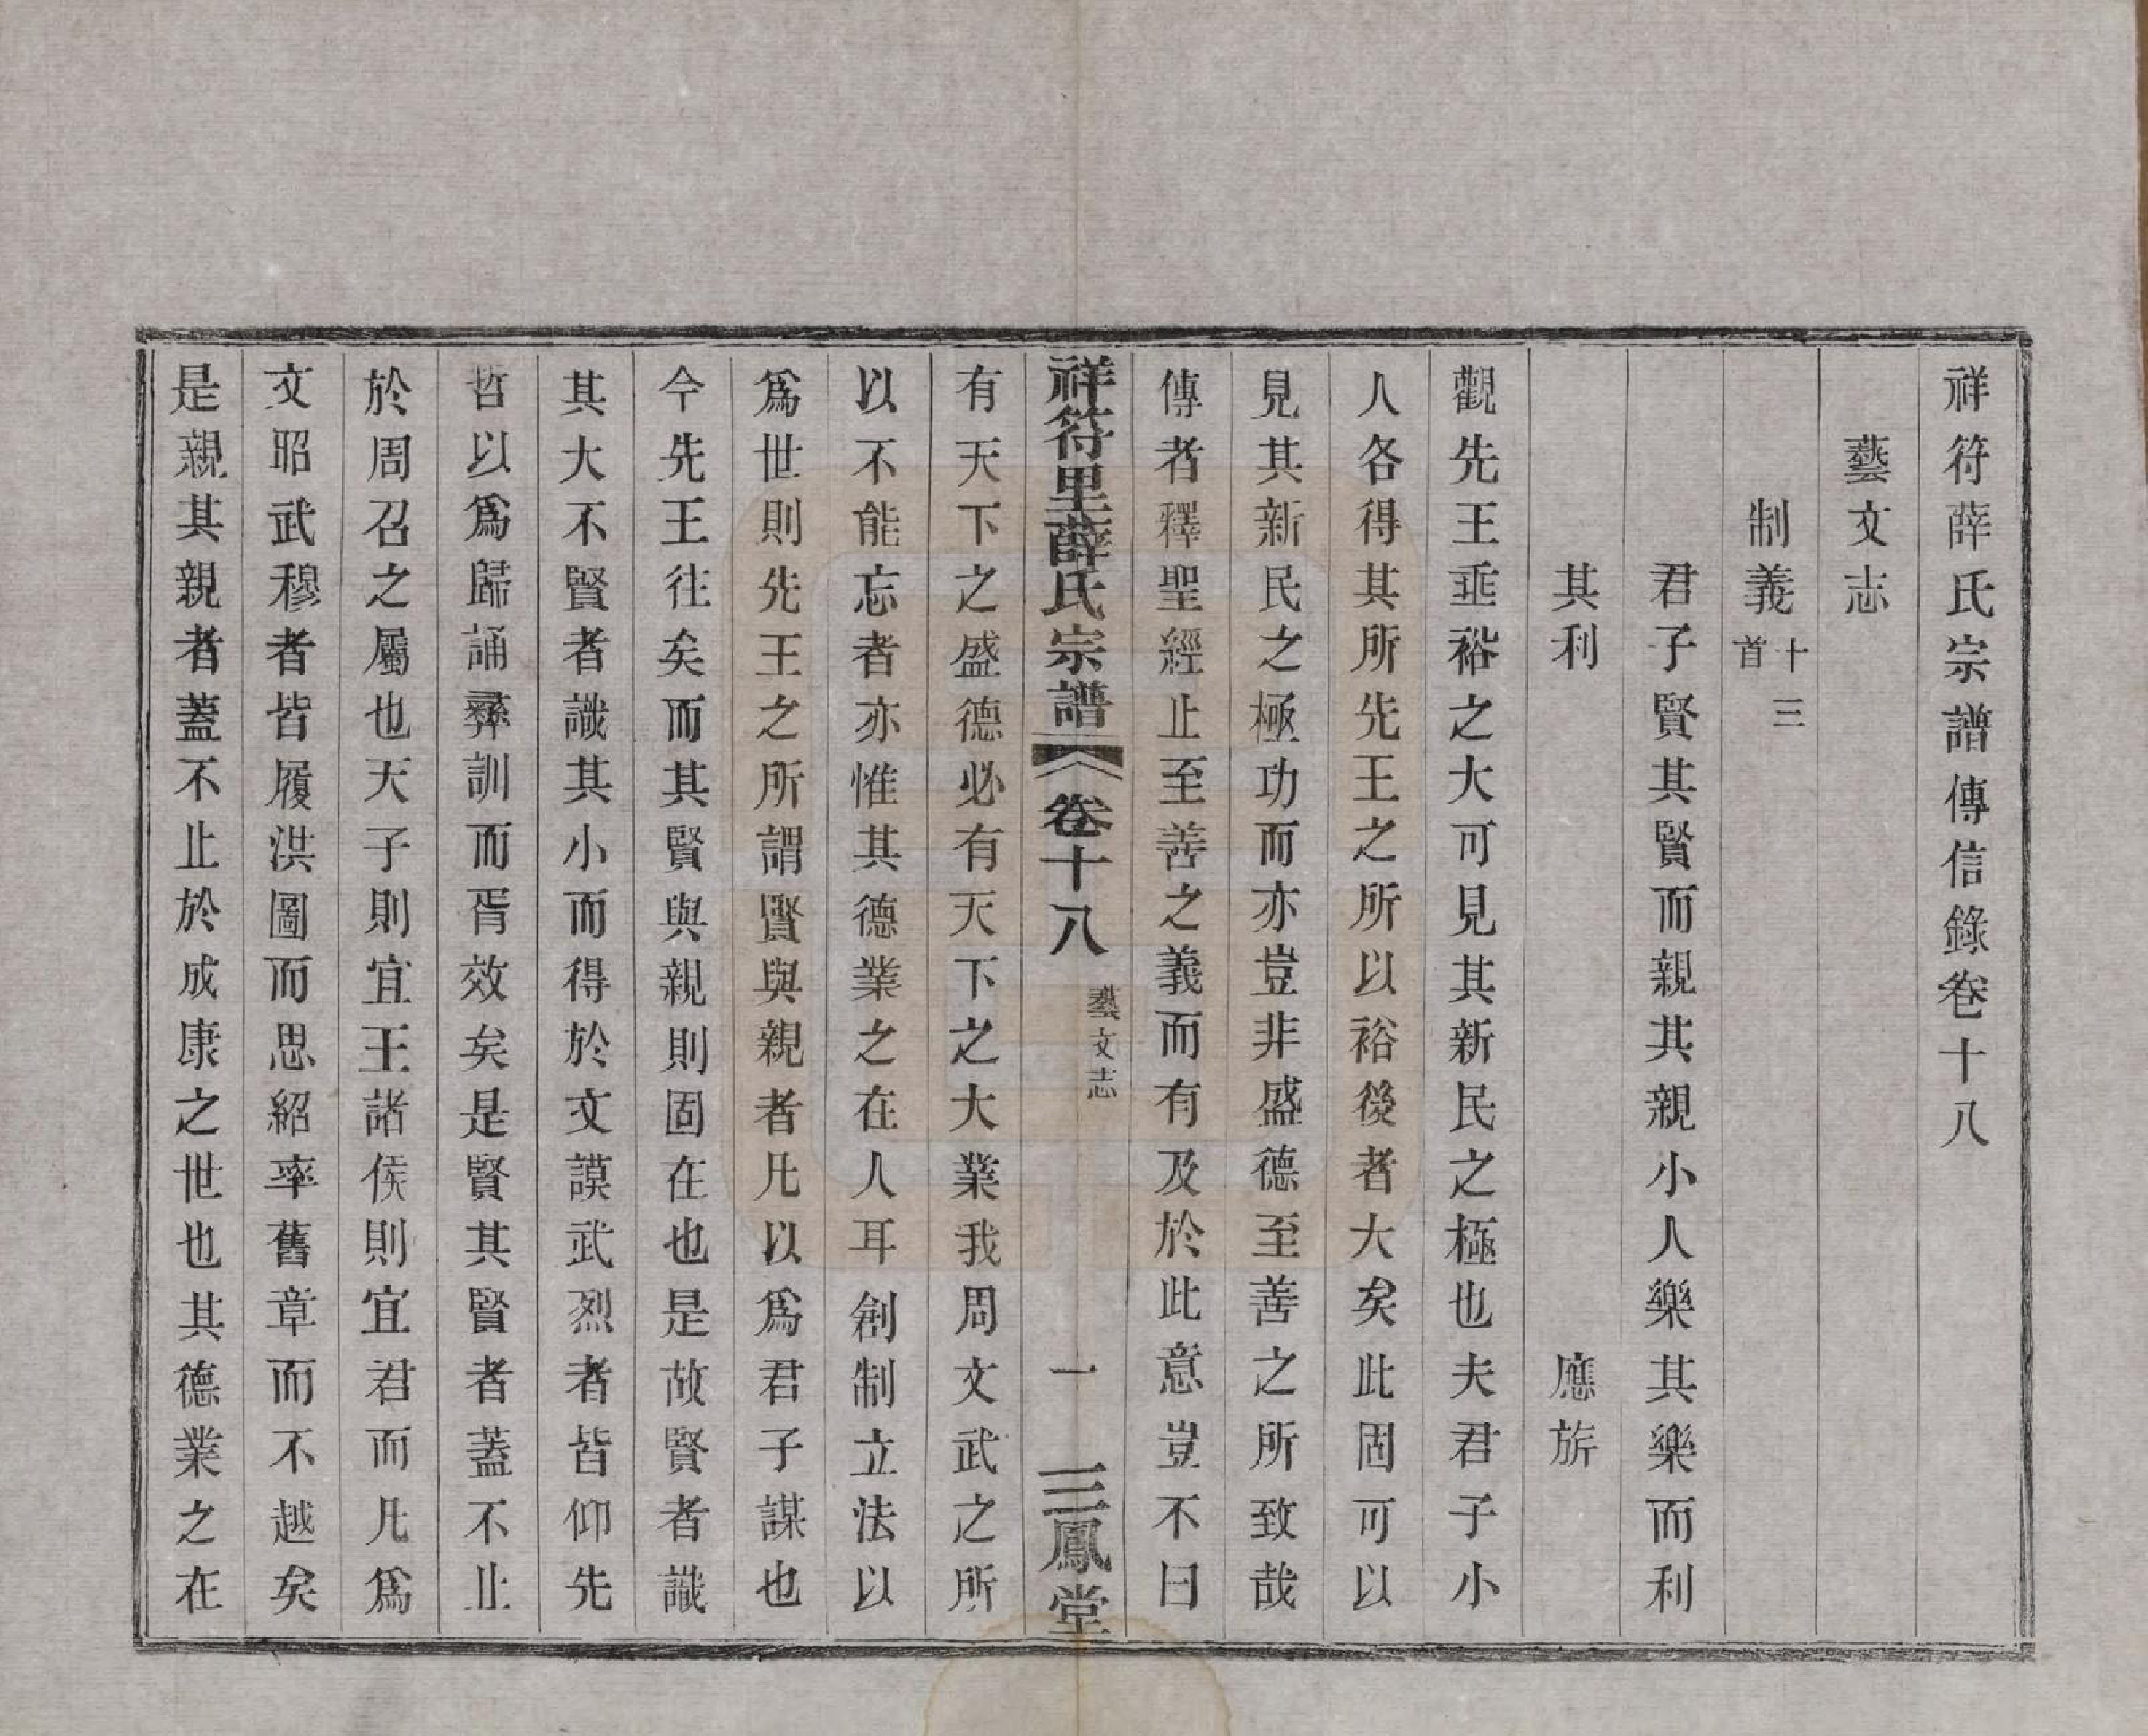 祥符薛氏宗譜傳信錄卷十八
藝文志
制義十三首
君子賢其賢而親其親小人樂其樂而利
其利 應旂
觀先王垂裕之大可見其新民之極也夫君子小
人各得其所先王之所以裕後者大矣此固可以
見其新民之極功而亦豈非盛德至善之所致哉
傳者釋聖經止至善之義而有及於此意豈不曰
祥符里薛氏宗譜 卷十八 藝文志 一 三鳳堂
有天下之盛德必有天下之大業我周文武之所
以不能忘者亦惟其德業之在人耳創制立法以
爲世則先王之所謂賢與親者凡以爲君子謀也
今先王往矣而其賢與親則固在也是故賢者識
其大不賢者識其小而得於文謨武烈者皆仰先
哲以爲歸誦彞訓而胥效矣是賢其賢者蓋不止
於周召之屬也天子則宜王諸侯則宜君而凡爲
文昭武穆者皆履洪圖而思紹率舊章而不越矣
是親其親者蓋不止於成康之世也其德業之在